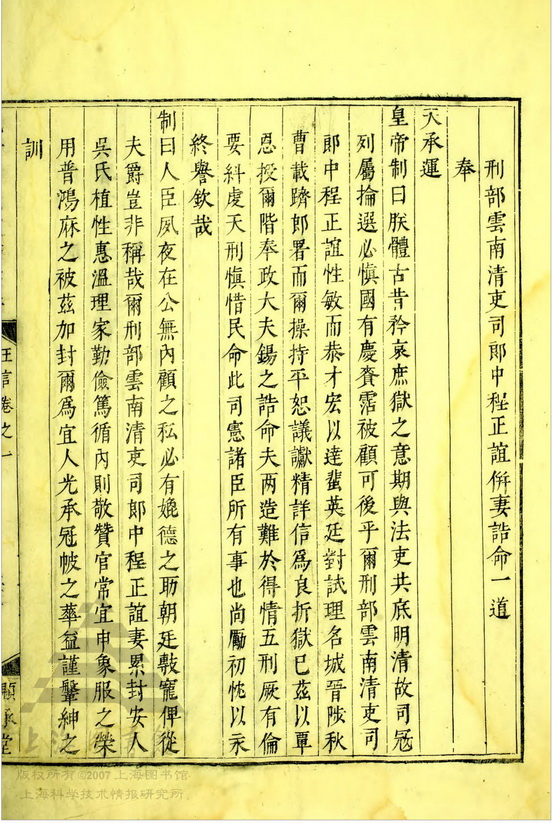 刑部雲南清吏司郎中程正誼併妻誥命一道
奉
天承運
皇帝制曰朕體古昔矜哀庶獄之意期與法吏共底明清故司冠
列屬掄選必慎國有慶賚霑被顧可後乎爾刑部雲南清吏司
郎中程正誼性敏而恭才宏以達蜚英廷對試理名城晉陟秋
曹載躋郎署而爾操持平恕議讞精詳信爲良折獄已茲以覃
恩授爾階奉政大夫錫之誥命夫两造難於得情五刑厥有倫
要糾虔天刑慎惜民命此司憲諸臣所有事也尚勵初忱以永
終譽欽哉
制曰人臣夙夜在公無內顧之私必有媲德之助朝廷敷寵俾從
夫爵豈非稱哉爾刑部雲南清吏司郎中程正誼妻累封安人
吳氏植性惠溫理家勤儉篤循內則敬贊官常宜申象服之榮
用普鴻庥之被茲加封爾爲宜人光承冠帔之華益謹鞶紳之
訓
王言卷之一
顯承堂
版权所有©2007上海图书馆
上海科学技术情报研究所